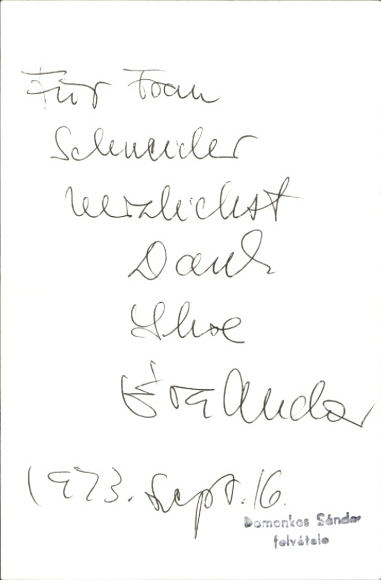 Für Frau
Schneider
herzlichst
Dank
Ihre
Éva Andor
1973. Sept. 16.
Domonkos Sándor
felvétele